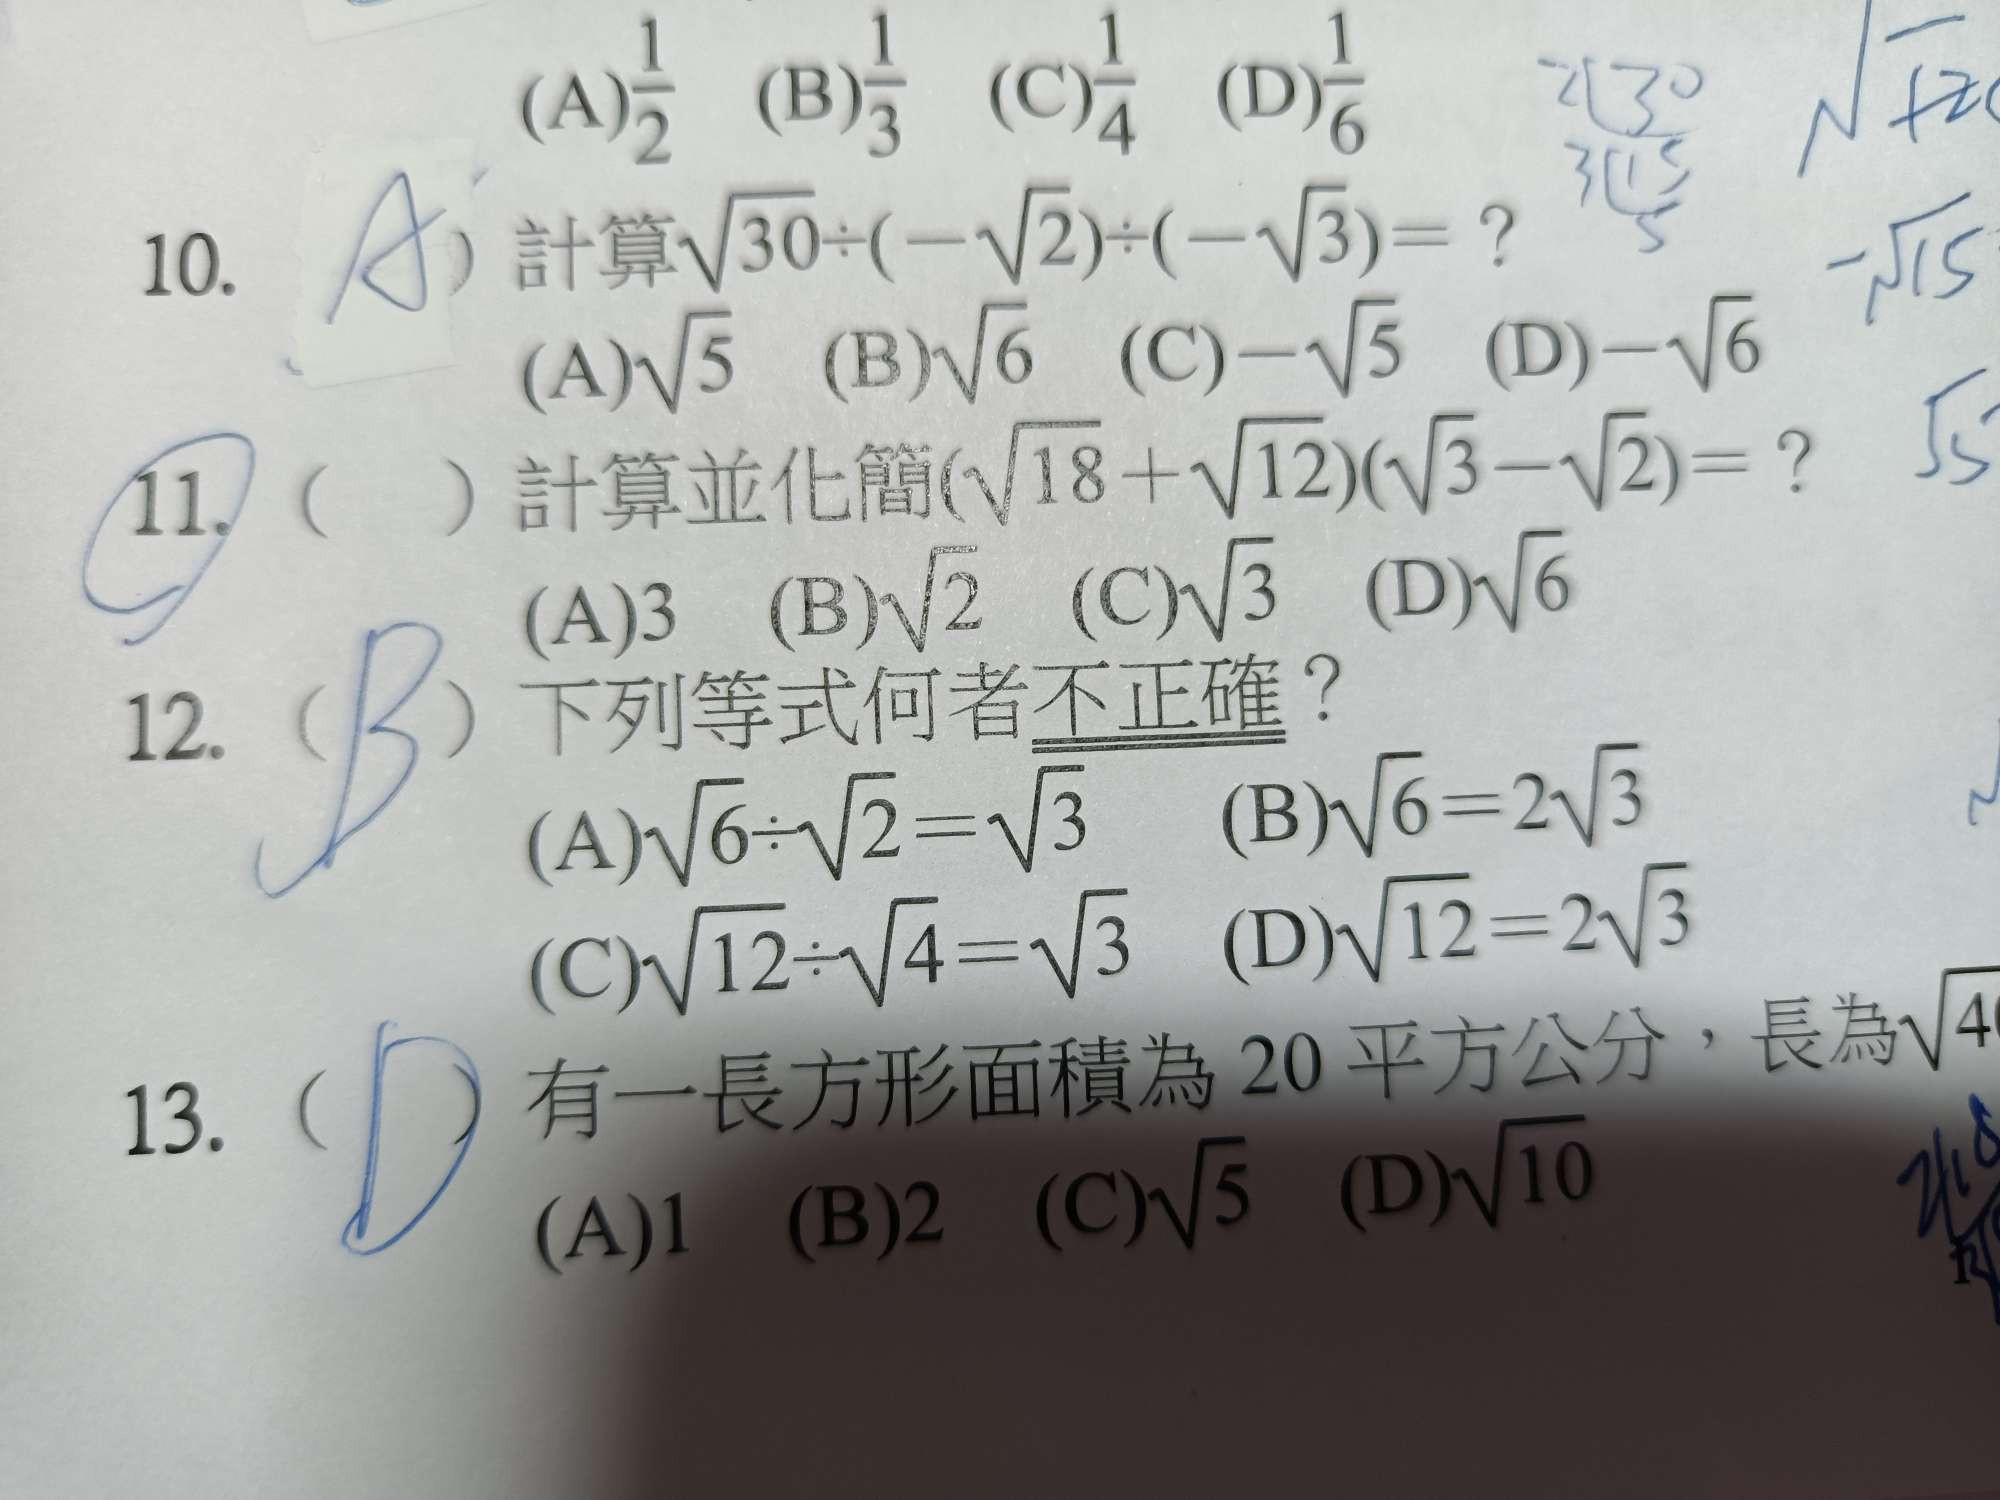 (A)1/2 (B)1/3 (C)1/4 (D)1/6
2 30
3 15
5
10. A ) 計算√30÷(−√2)÷(−√3)=？
-√15
(A)√5 (B)√6 (C)−√5 (D)−√6
11. ( ) 計算並化簡(√18+√12)(√3−√2)=？
(A)3 (B)√2 (C)√3 (D)√6
12. (B) 下列等式何者不正確？
(A)√6÷√2=√3 (B)√6=2√3
(C)√12÷√4=√3 (D)√12=2√3
13. (D) 有一長方形面積為 20 平方公分，長為
(A)1 (B)2 (C)√5 (D)√10